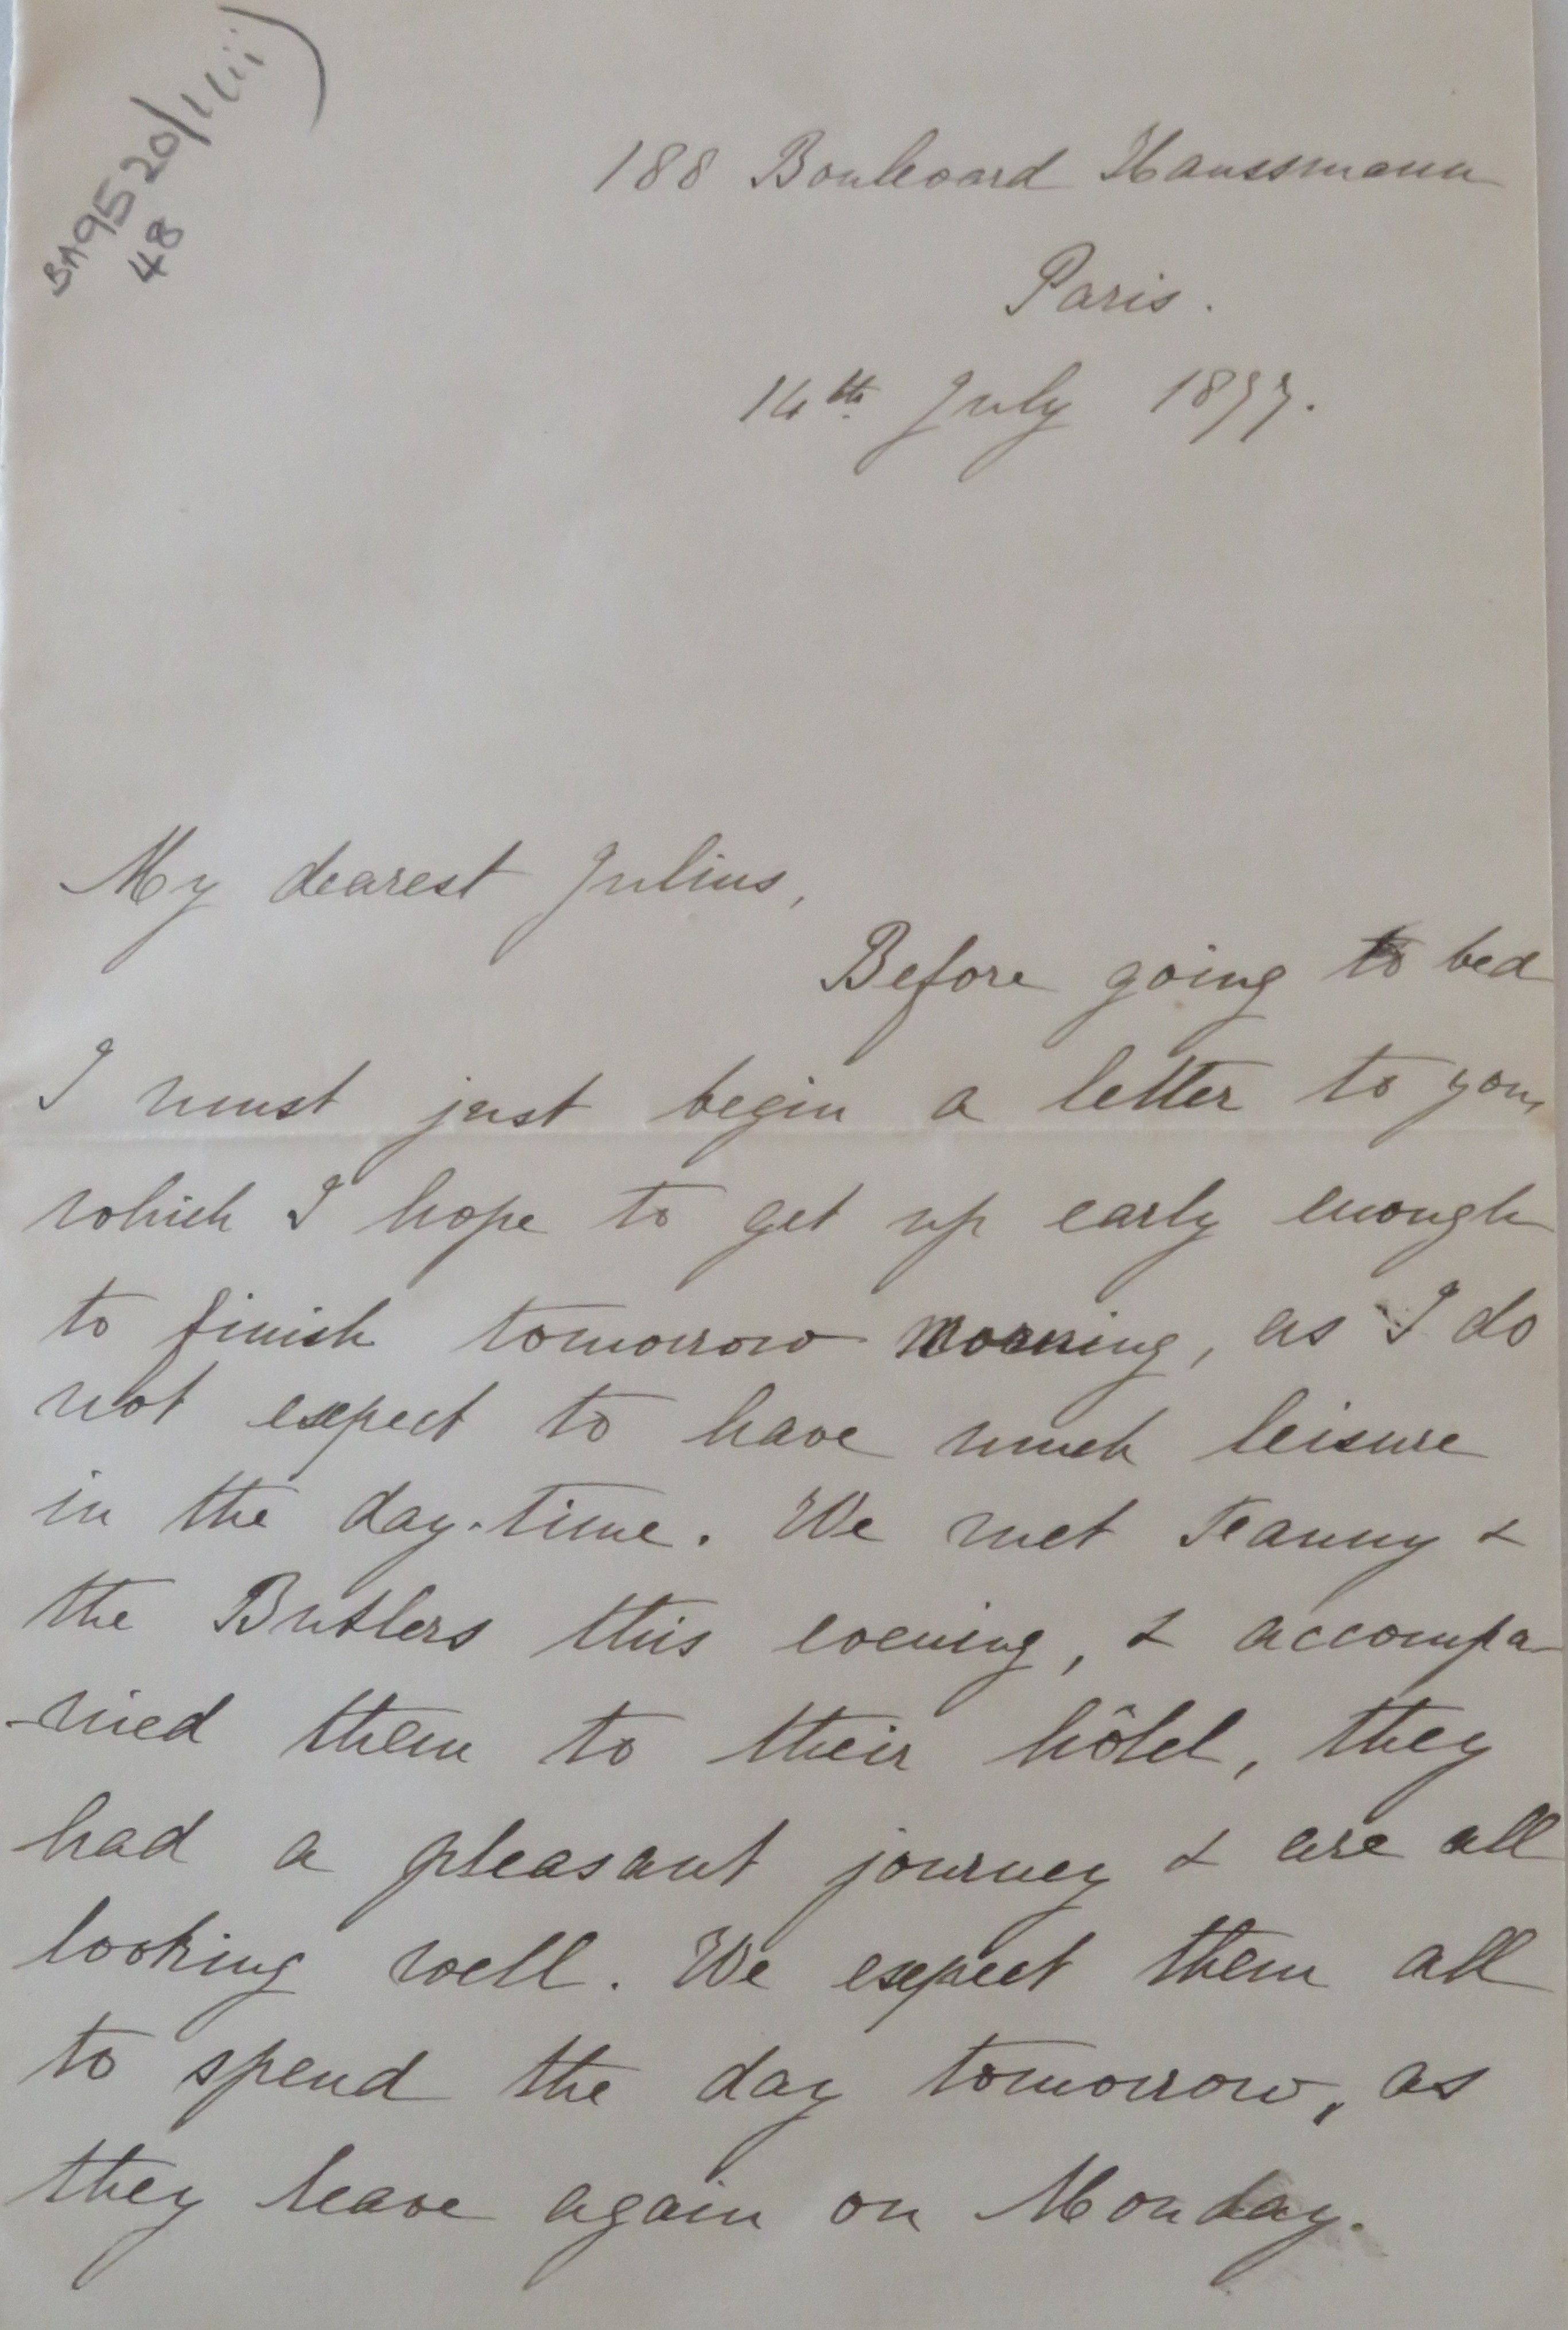 BA9520/1(iii)
48
188 Boulevard Haussmann
Paris.
14th July 1877.
My dearest Julius,
Before going to bed
I must just begin a letter to you,
which I hope to get up early enough
to finish tomorrow morning, as I do
not expect to have much leisure
in the day-time. We met Fanny &
the Butlers this evening, & accompa-
-nied them to their hôtel, they
had a pleasant journey & are all
looking well. We expect them all
to spend the day tomorrow, as
they leave again on Monday.